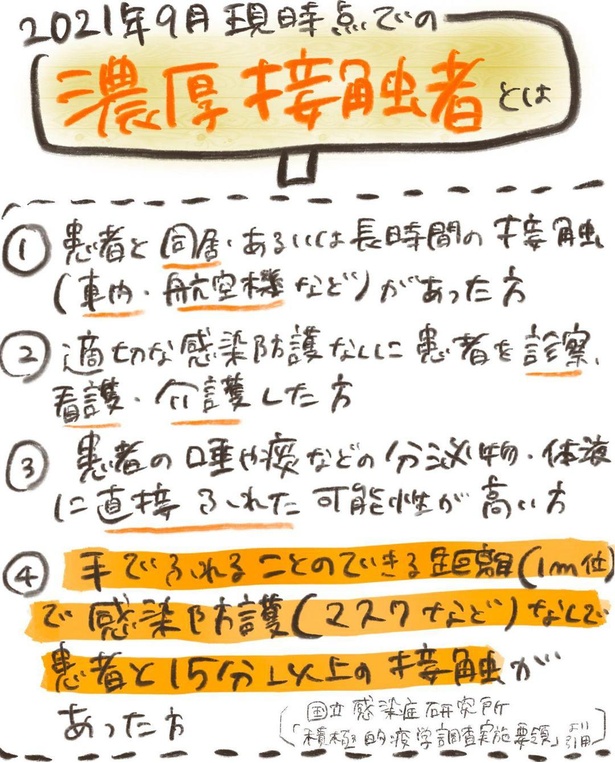 2021年9月現時点での
濃厚接触者とは
① 患者と同居・あるいは長時間の接触
(車内・航空機など)があった方
② 適切な感染防護なしに患者を診察、
看護・介護した方
③ 患者の唾や痰などの分泌物・体液
に直接ふれた可能性が高い方
④ 手でふれることのできる距離(1m位)
で感染防護(マスクなど)なしで
患者と15分以上の接触が
あった方
(国立感染症研究所
「積極的疫学調査実施要領」より引用)